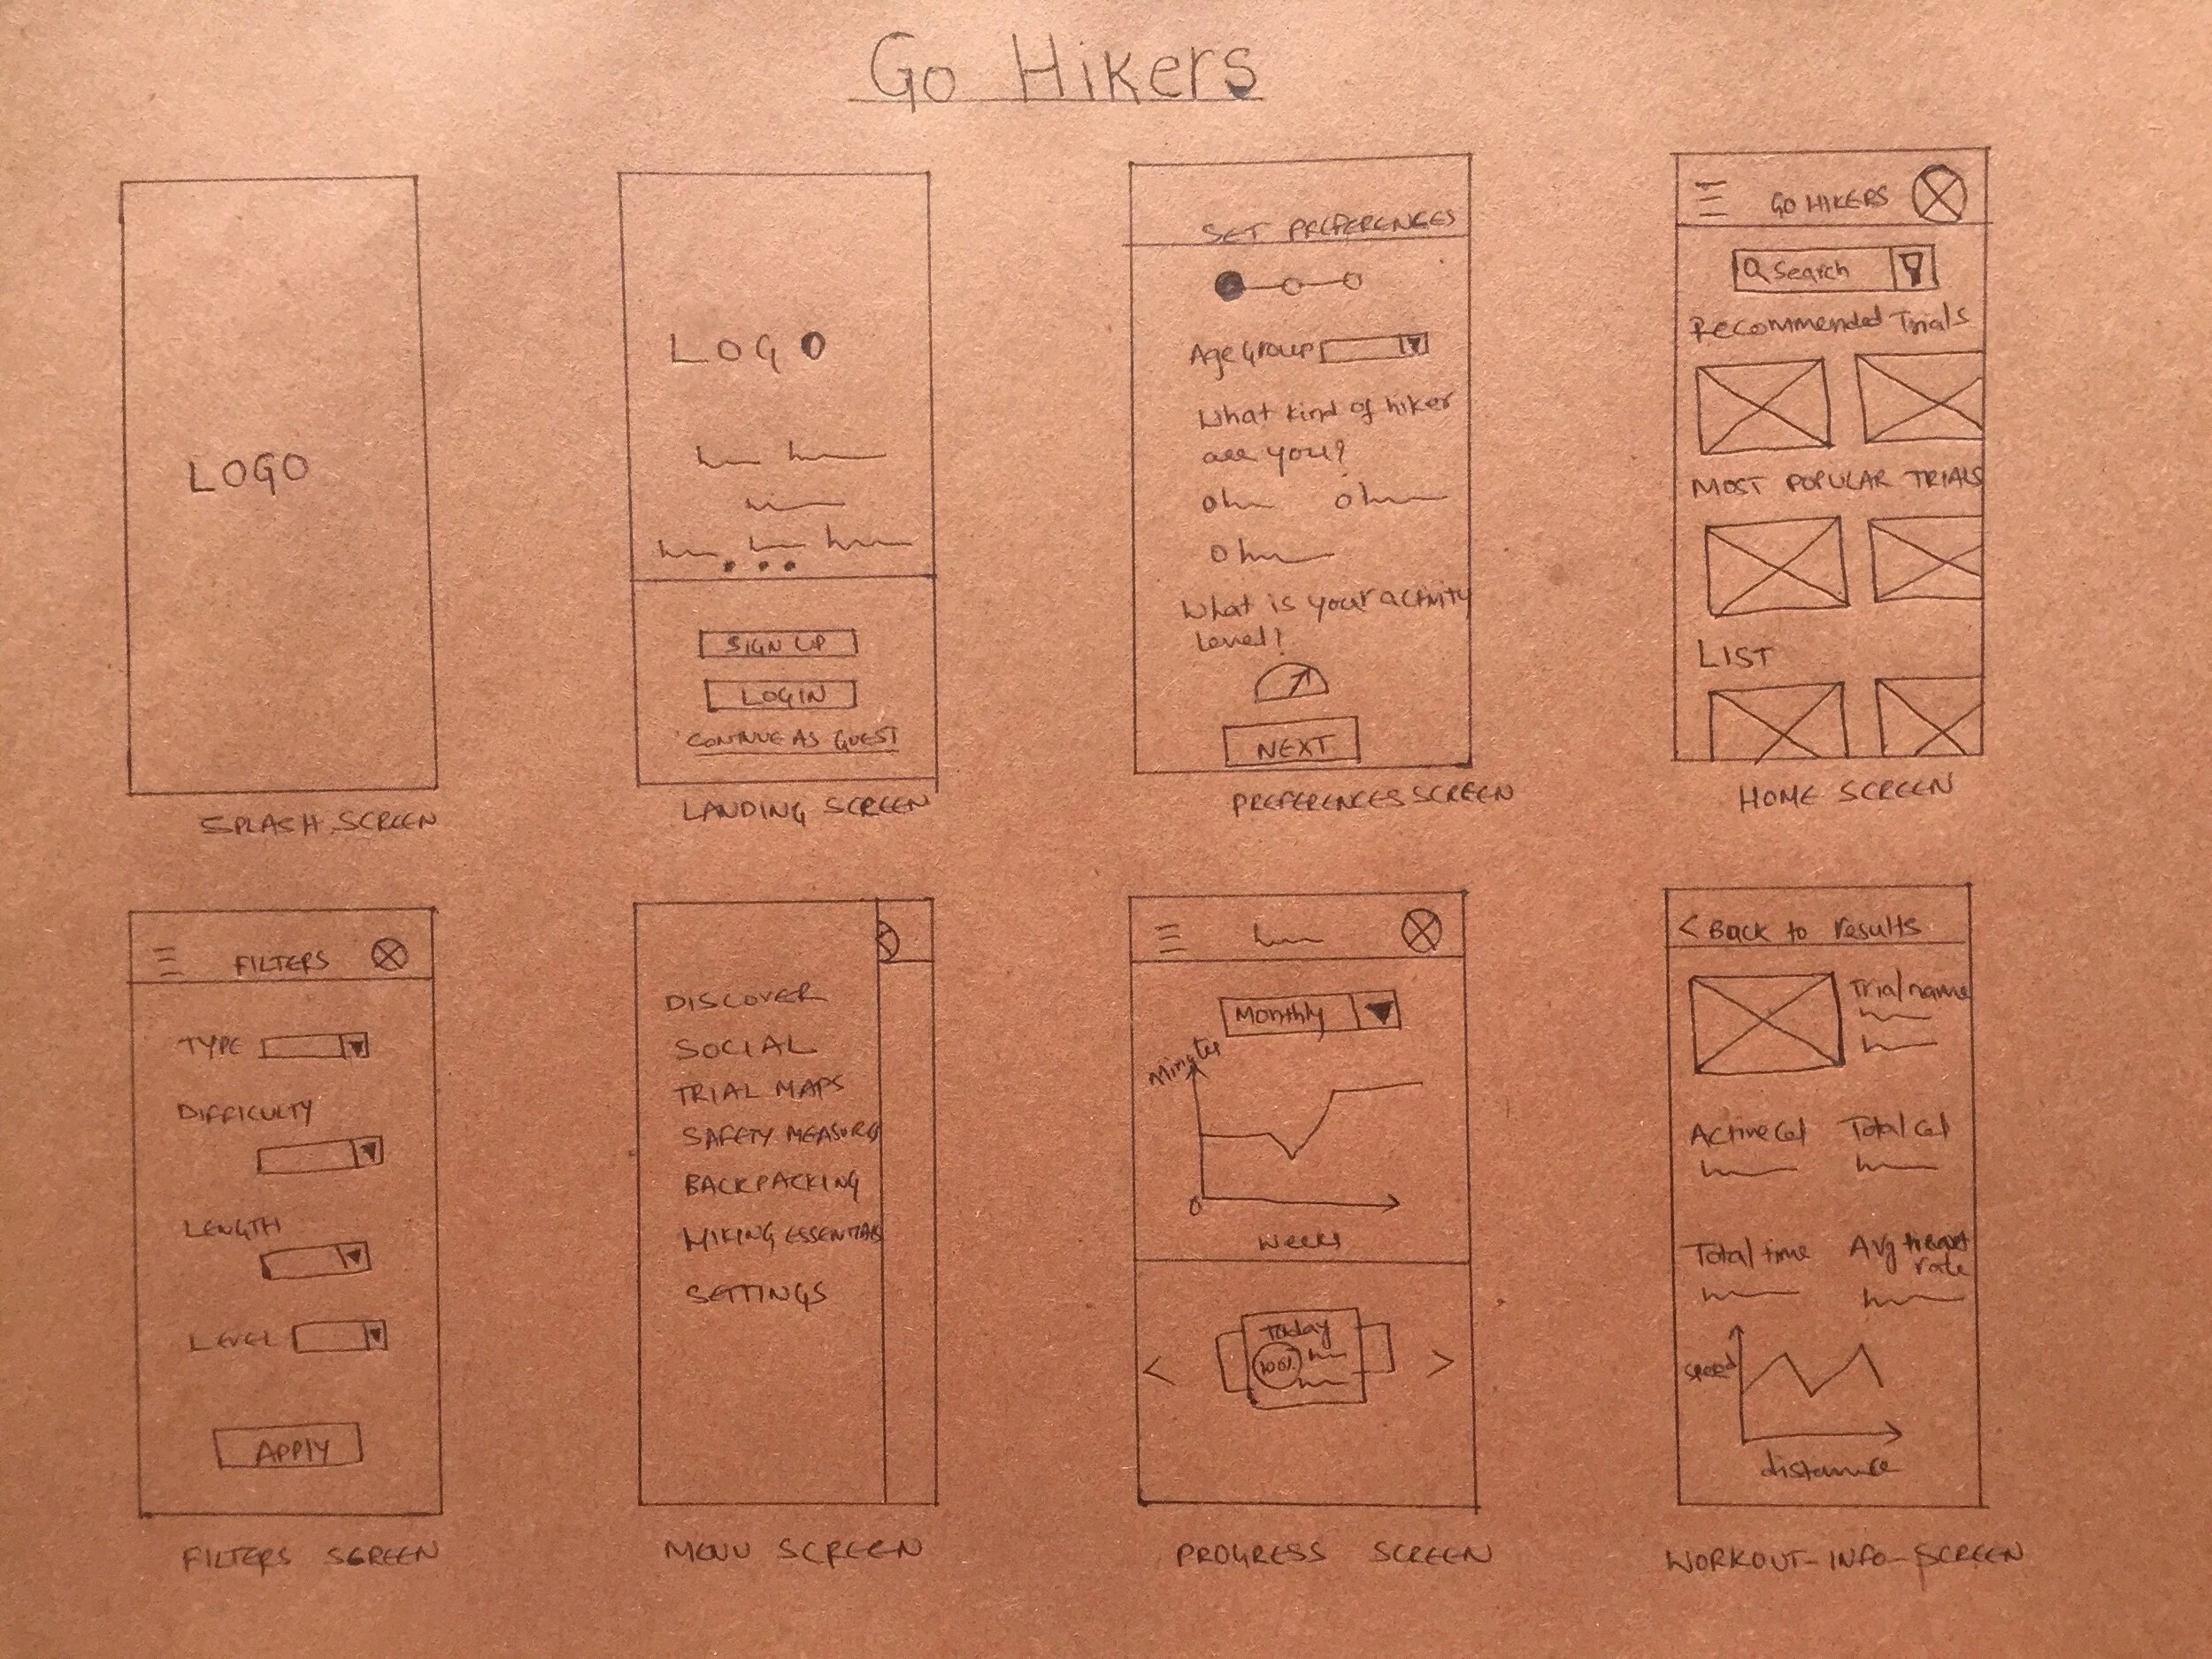 Go Hikers
LOGO
SPLASH SCREEN
LOGO
SIGN UP
LOGIN
CONTINUE AS GUEST
LANDING SCREEN
SET PREFERENCES
Age Group
What kind of hiker
are you?
What is your activity
level?
NEXT
PREFERENCES SCREEN
GO HIKERS
Search
Recommended Trials
MOST POPULAR TRIALS
LIST
HOME SCREEN
FILTERS
TYPE
DIFFICULTY
LENGTH
LEVEL
APPLY
FILTERS SCREEN
DISCOVER
SOCIAL
TRIAL MAPS
SAFETY MEASURES
BACKPACKING
HIKING ESSENTIALS
SETTINGS
MENU SCREEN
Monthly
Minutes
0
Weeks
Today
100%
< >
PROGRESS SCREEN
< Back to results
Trial name
Active Cal Total Cal
Total time Avg Heart
rate
speed
distance
WORKOUT-INFO-SCREEN